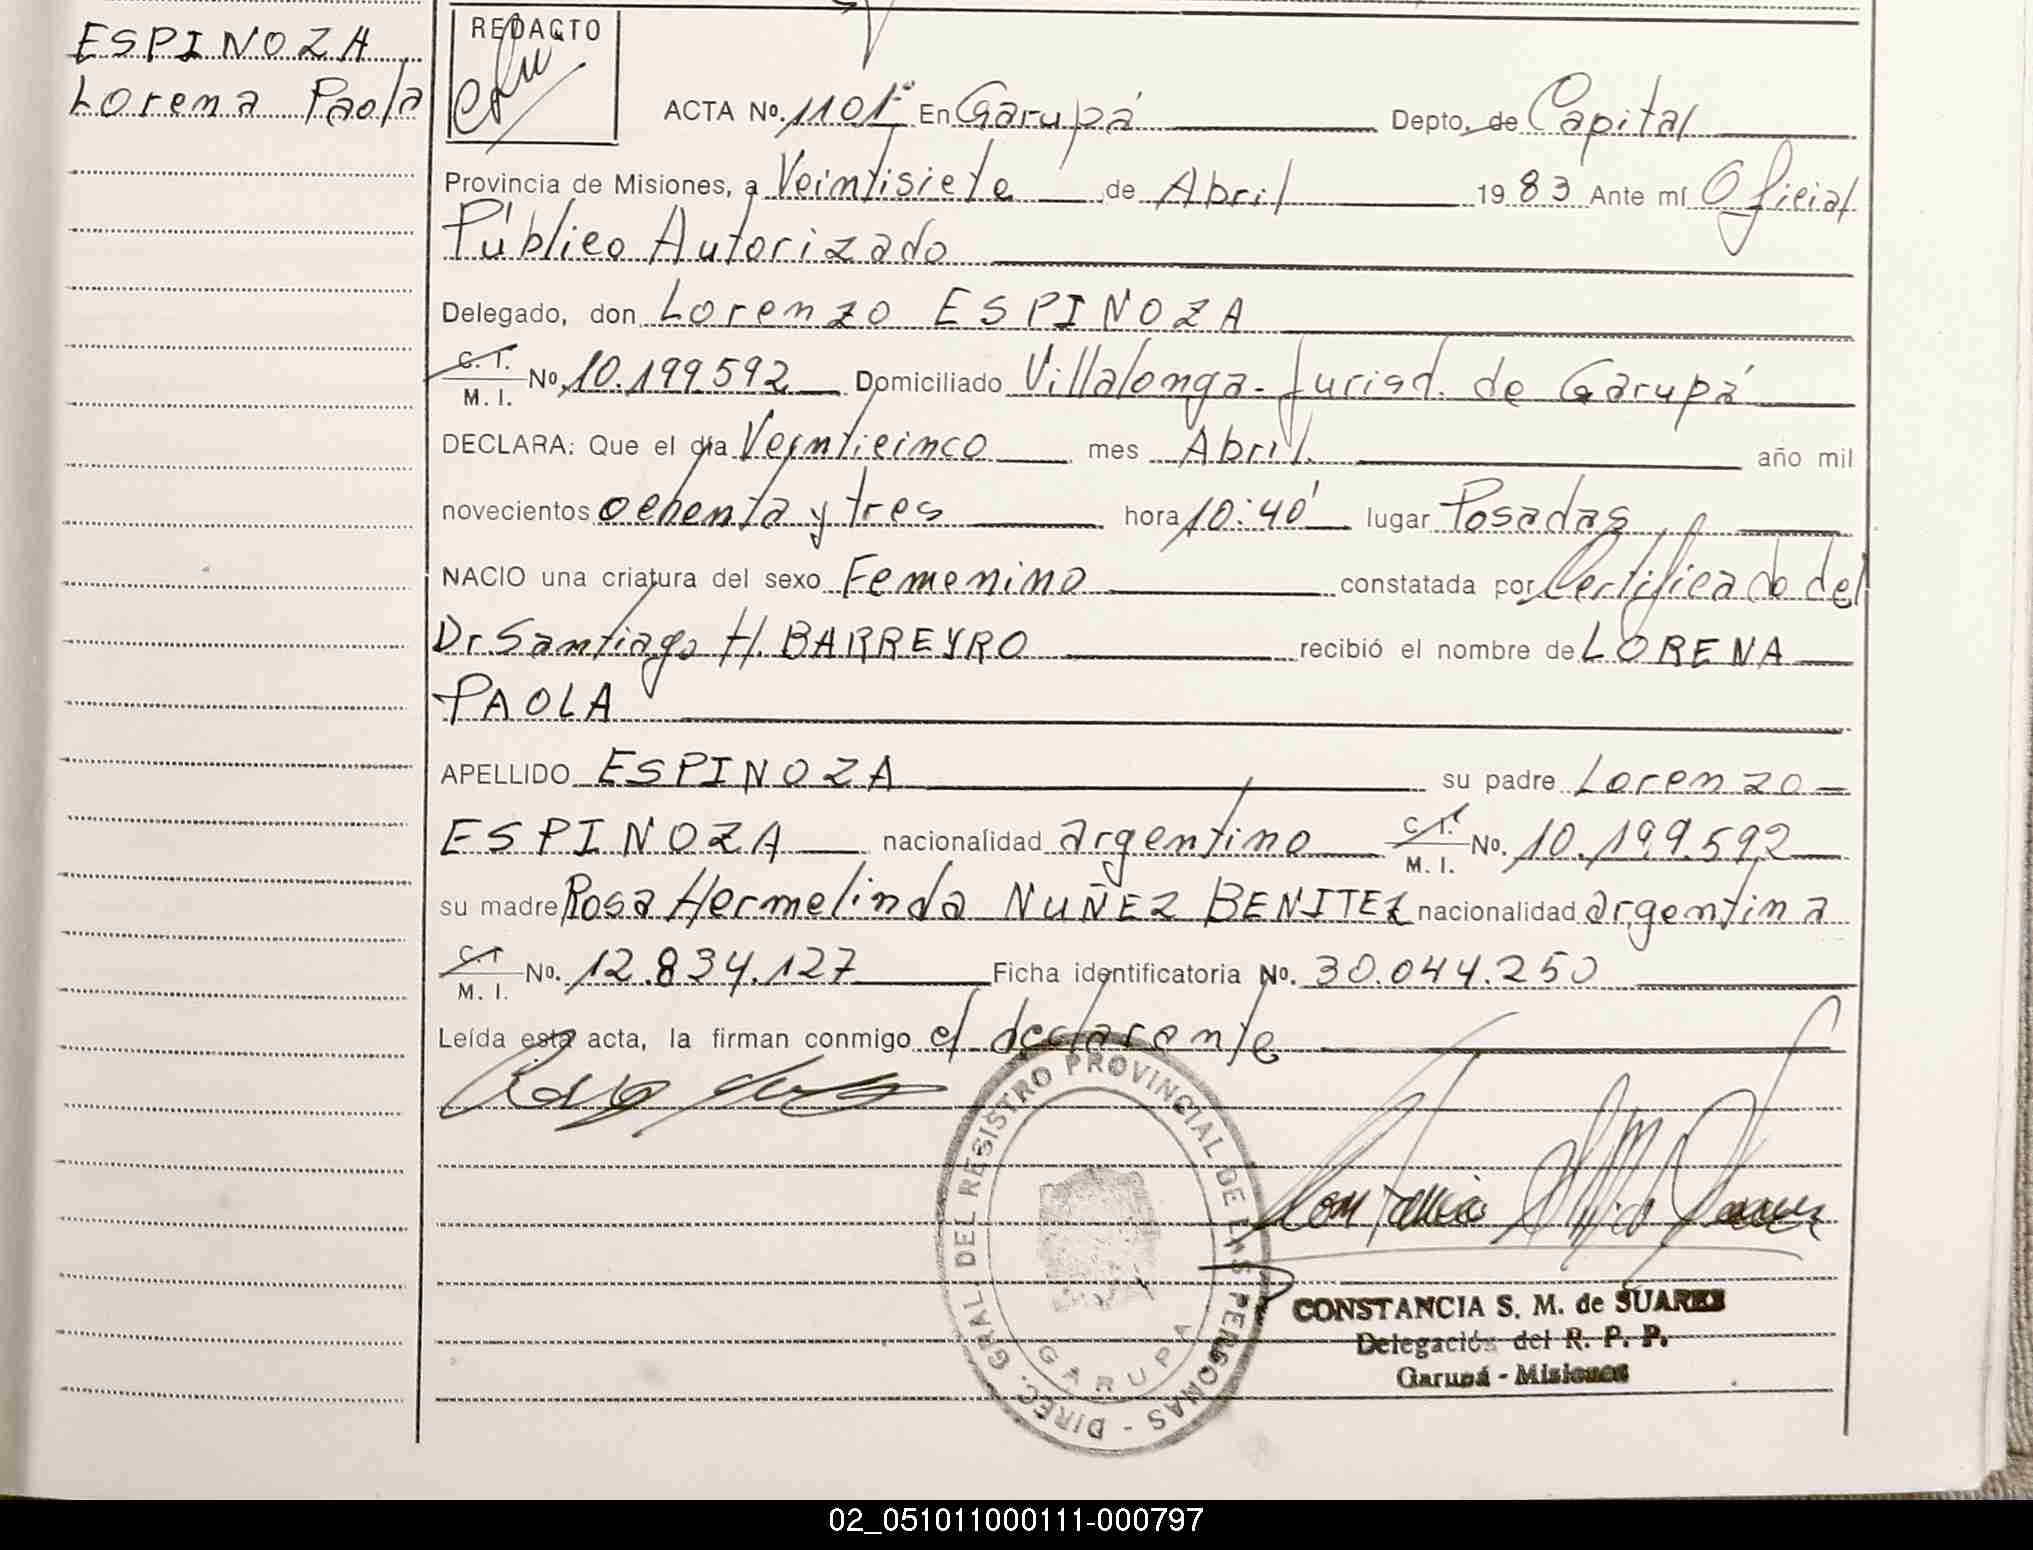 ESPINOZA
Lorena Paola
REDACTO
ACTA No. 1101 En Garupá Depto. de Capital
Provincia de Misiones, a Veintisiete de Abril 1983 Ante mí Oficial
Público Autorizado
Delegado, don Lorenzo ESPINOZA
C. I.
M. I. No. 10.199592 Domiciliado Villalonga - Jurisd. de Garupá
DECLARA: Que el día Veinticinco mes Abril. año mil
novecientos ochenta y tres hora 10:40' lugar Posadas
NACIO una criatura del sexo Femenino constatada por Certificado del
Dr. Santiago H. BARREYRO recibió el nombre de LORENA
PAOLA
APELLIDO ESPINOZA su padre Lorenzo
ESPINOZA nacionalidad argentino C. I. M. I. No. 10.199.592
su madre Rosa Hermelinda NUÑEZ BENITEZ nacionalidad argentina
C. I M. I. No. 12.834.127 Ficha identificatoria No. 30.044.250
Leída esta acta, la firman conmigo el declarante
DIREC. GRAL. DEL REGISTRO PROVINCIAL DE LAS PERSONAS -
GARUPA
CONSTANCIA S. M. de SUAREZ
Delegación del R. P. P.
Garupá - Misiones
02_051011000111-000797